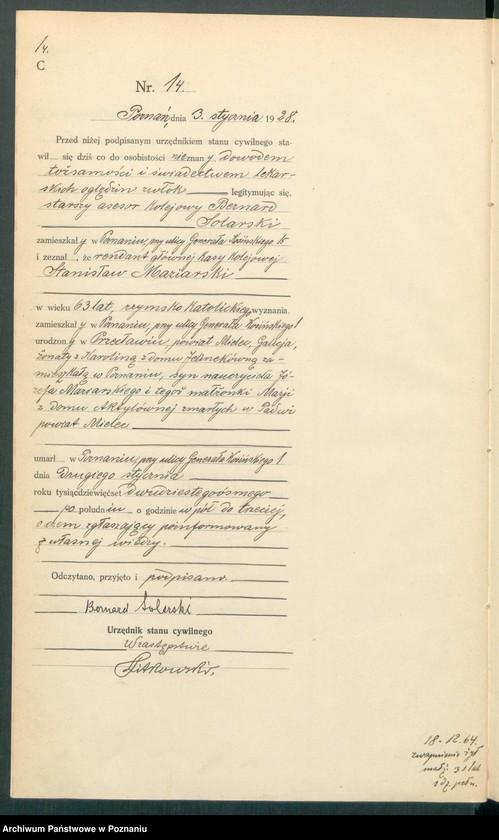 14.
C
Nr. 14.
Poznań, dnia 3. stycznia 1928.
Przed niżej podpisanym urzędnikiem stanu cywilnego sta-
wił się dziś co do osobistości nieznany, dowodem
tożsamości i świadectwem lekar-
skich oględzin zwłok legitymując się.
starszy asesor kolejowy Bernard
Solarski
zamieszkały w Poznaniu, przy ulicy Generała Kosińskiego
i zeznał, że rendant głównej kasy kolejowej
Stanisław Maziarski
w wieku 63 lat, rzymsko katolickiego wyznania.
zamieszkały w Poznaniu, przy ulicy Generała Kosińskiego 1
urodzony w Przecławiu, powiat Mielec, Galicja,
żonaty z Karoliną z domu za-
mieszkałą w Poznaniu, syn nauczyciela Jó-
zefa Maziarskiego i tegoż małżonki Marji
z domu zmarłych w
powiat Mielec
umarł w Poznaniu, przy ulicy Generała Kosińskiego 1
dnia drugiego stycznia
roku tysiącdziewięćset dwudziestegoósmego
po południu o godzinie w pół do trzeciej,
o czem zgłaszający poinformowany
z własnej wiedzy.
Odczytano, przyjęto i podpisano
Bernard Solarski
Urzędnik stanu cywilnego
W zastępstwie
18-12.64
małż. 31 lat
Archiwum Państwowe w Poznaniu